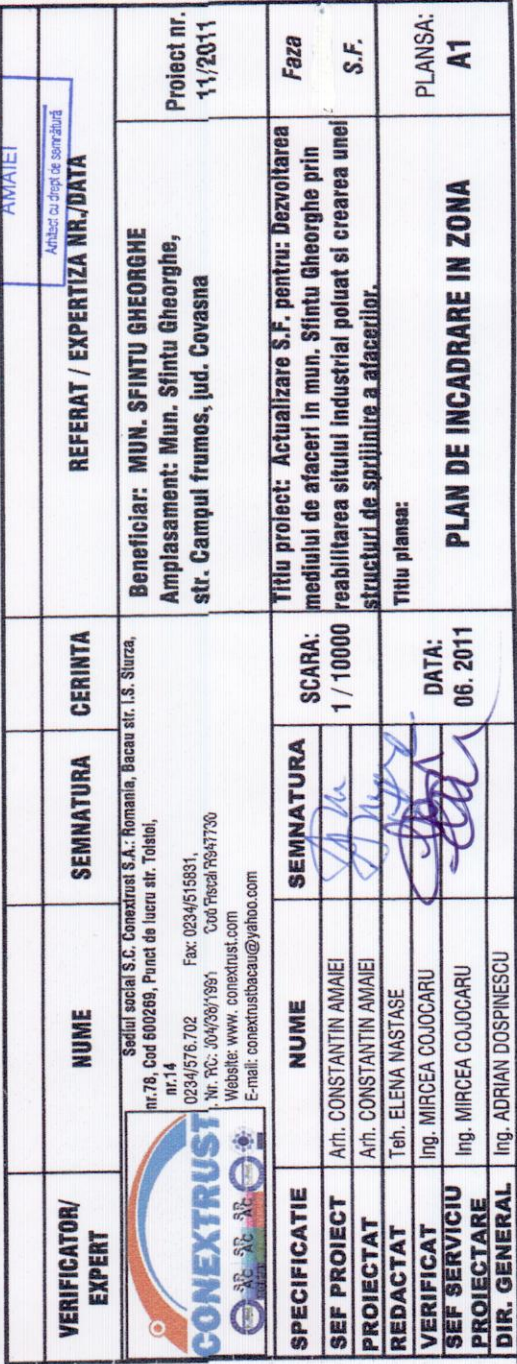 AMAIEI
Arhitect cu drept de semnătură
VERIFICATOR/
EXPERT
NUME
SEMNATURA
CERINTA
REFERAT / EXPERTIZA NR./DATA
CONEXTRUST
Sediul social S.C. Conextrust S.A.: Romania, Bacau str. I.S. Sturza,
nr.78, Cod 600269, Punct de lucru str. Tolstoi,
nr.14
0234/576.702 Fax: 0234/515831,
Nr. RC: J04/38/1991 Cod Fiscal R947730
Website: www. conextrust.com
E-mail: conextrustbacau@yahoo.com
Beneficiar: MUN. SFINTU GHEORGHE
Amplasament: Mun. Sfintu Gheorghe,
str. Campul frumos, jud. Covasna
Proiect nr.
11/2011
SPECIFICATIE
NUME
SEMNATURA
SEF PROIECT
Arh. CONSTANTIN AMAIEI
PROIECTAT
Arh. CONSTANTIN AMAIEI
REDACTAT
Teh. ELENA NASTASE
VERIFICAT
Ing. MIRCEA COJOCARU
SEF SERVICIU
PROIECTARE
Ing. MIRCEA COJOCARU
DIR. GENERAL
Ing. ADRIAN DOSPINESCU
SCARA:
1 / 10000
DATA:
06. 2011
Titlu proiect: Actualizare S.F. pentru: Dezvoltarea
mediului de afaceri in mun. Sfintu Gheorghe prin
reabilitarea sitului industrial poluat si crearea unei
structuri de sprijinire a afacerilor.
Titlu plansa:
PLAN DE INCADRARE IN ZONA
Faza
S.F.
PLANSA:
A1